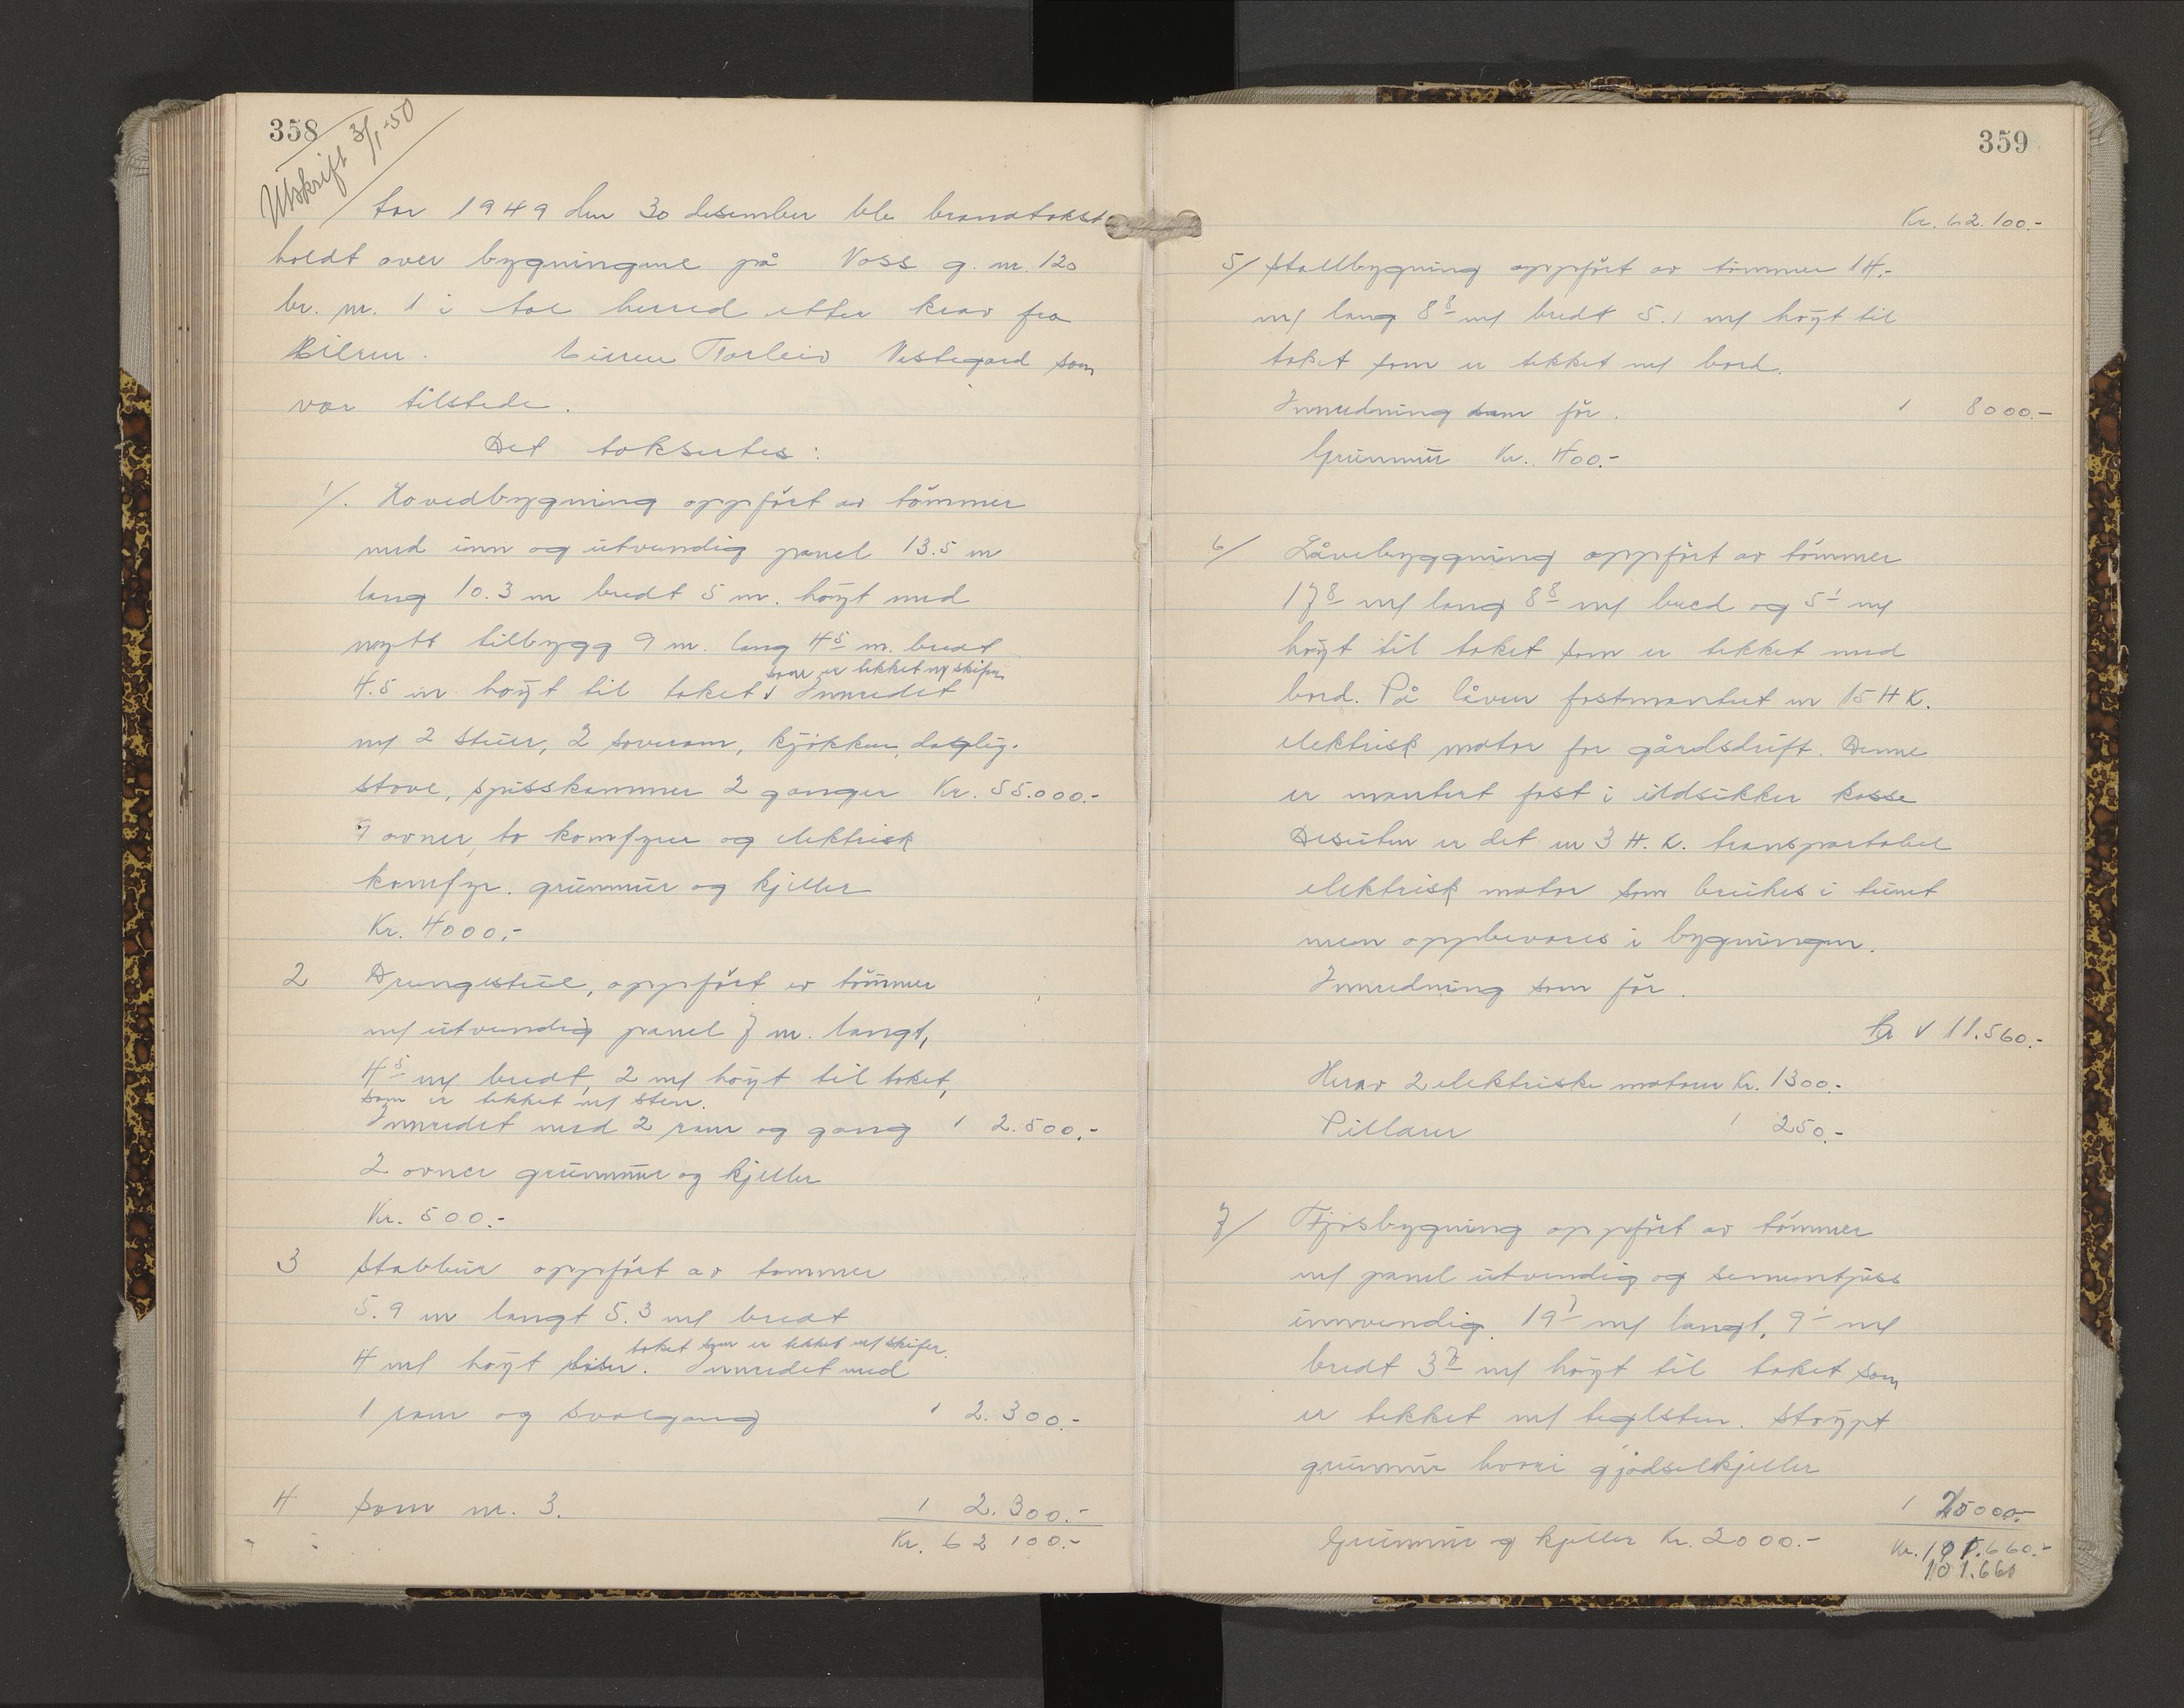 358
Utskrift 3/1-50
År 1949 den 30 desember ble branntakst
holdt over bygningene på Voss g. nr. 120
br. nr. 1 i Ål herred etter krav fra
Eieren Torleiv Vestegard som
var tilstede.
Det taksertes:
1/. Hovedbygning oppført av tømmer
med inn og utvendig panel 13.5 m
lang 10.3 m bredt 5 m. høyt med
nytt tilbygg 9 m. lang 4⁵ m. bredt
som er tekket m/ skifer
4.5 m høyt til taket √ Innredet
m/ 2 stuer, 2 soverom, kjøkken, daglig-
stove, spisskammer 2 ganger Kr. 55.000.-
9 ovner, to komfyrer og elektrisk
komfyr. grunnmur og kjeller
Kr. 4000.-
2 Drengestue, oppført av tømmer
m/ utvendig panel 7 m. langt,
4⁵ m/ bredt, 2 m/ høyt til taket,
som er tekket m/ sten.
Innredet med 2 rom og gang " 2.500.-
2 ovner grunnmur og kjeller
Kr. 500.-
3 Stabbur oppført av tømmer
5.9 m langt 5.3 m/ bredt
taket som er tekket m/ skifer.
4 m/ høyt Innredet med
1 rom og svalgang " 2.300.-
4 Som nr. 3. " 2.300.-
Kr. 62 100.-
359
Kr. 62.100.-
5/ Stallbygning oppført av tømmer 14.-
m/ lang 8⁸ m/ bredt 5.1 m/ høyt til
taket som er tekket m/ bord.
Innredning som før. " 8000.-
Grunnmur Kr. 400.-
6/ Låvebyggning oppført av tømmer
17⁸ m/ lang 8⁸ m/ bred og 5¹ m/
høyt til taket som er tekket med
bord. På låven fastmontert en 15 H K.
elektrisk motor for gårdsdrift. Denne
er montert fast i ildsikker kasse
Desuten er det en 3 H. K. transportabel
elektrisk motor som brukes i tunet
men oppbevares i bygningen.
Innredning som før.
Kr √ 11.560.-
Herav 2 elektriske motorer Kr. 1300.-
Pillarer " 250.-
7/ Fjøsbygning oppført av tømmer
m/ panel utvendig og sementpuss
innvendig. 19⁷ m/ langt, 9¹ m/
bredt 3⁷ m/ høyt til taket som
er tekket m/ teglsten. Støypt
grunnmur hvori gjødselkjeller
" 25000.-
Grunnmur og kjeller Kr. 2000.- Kr. 101.660.-
101.660